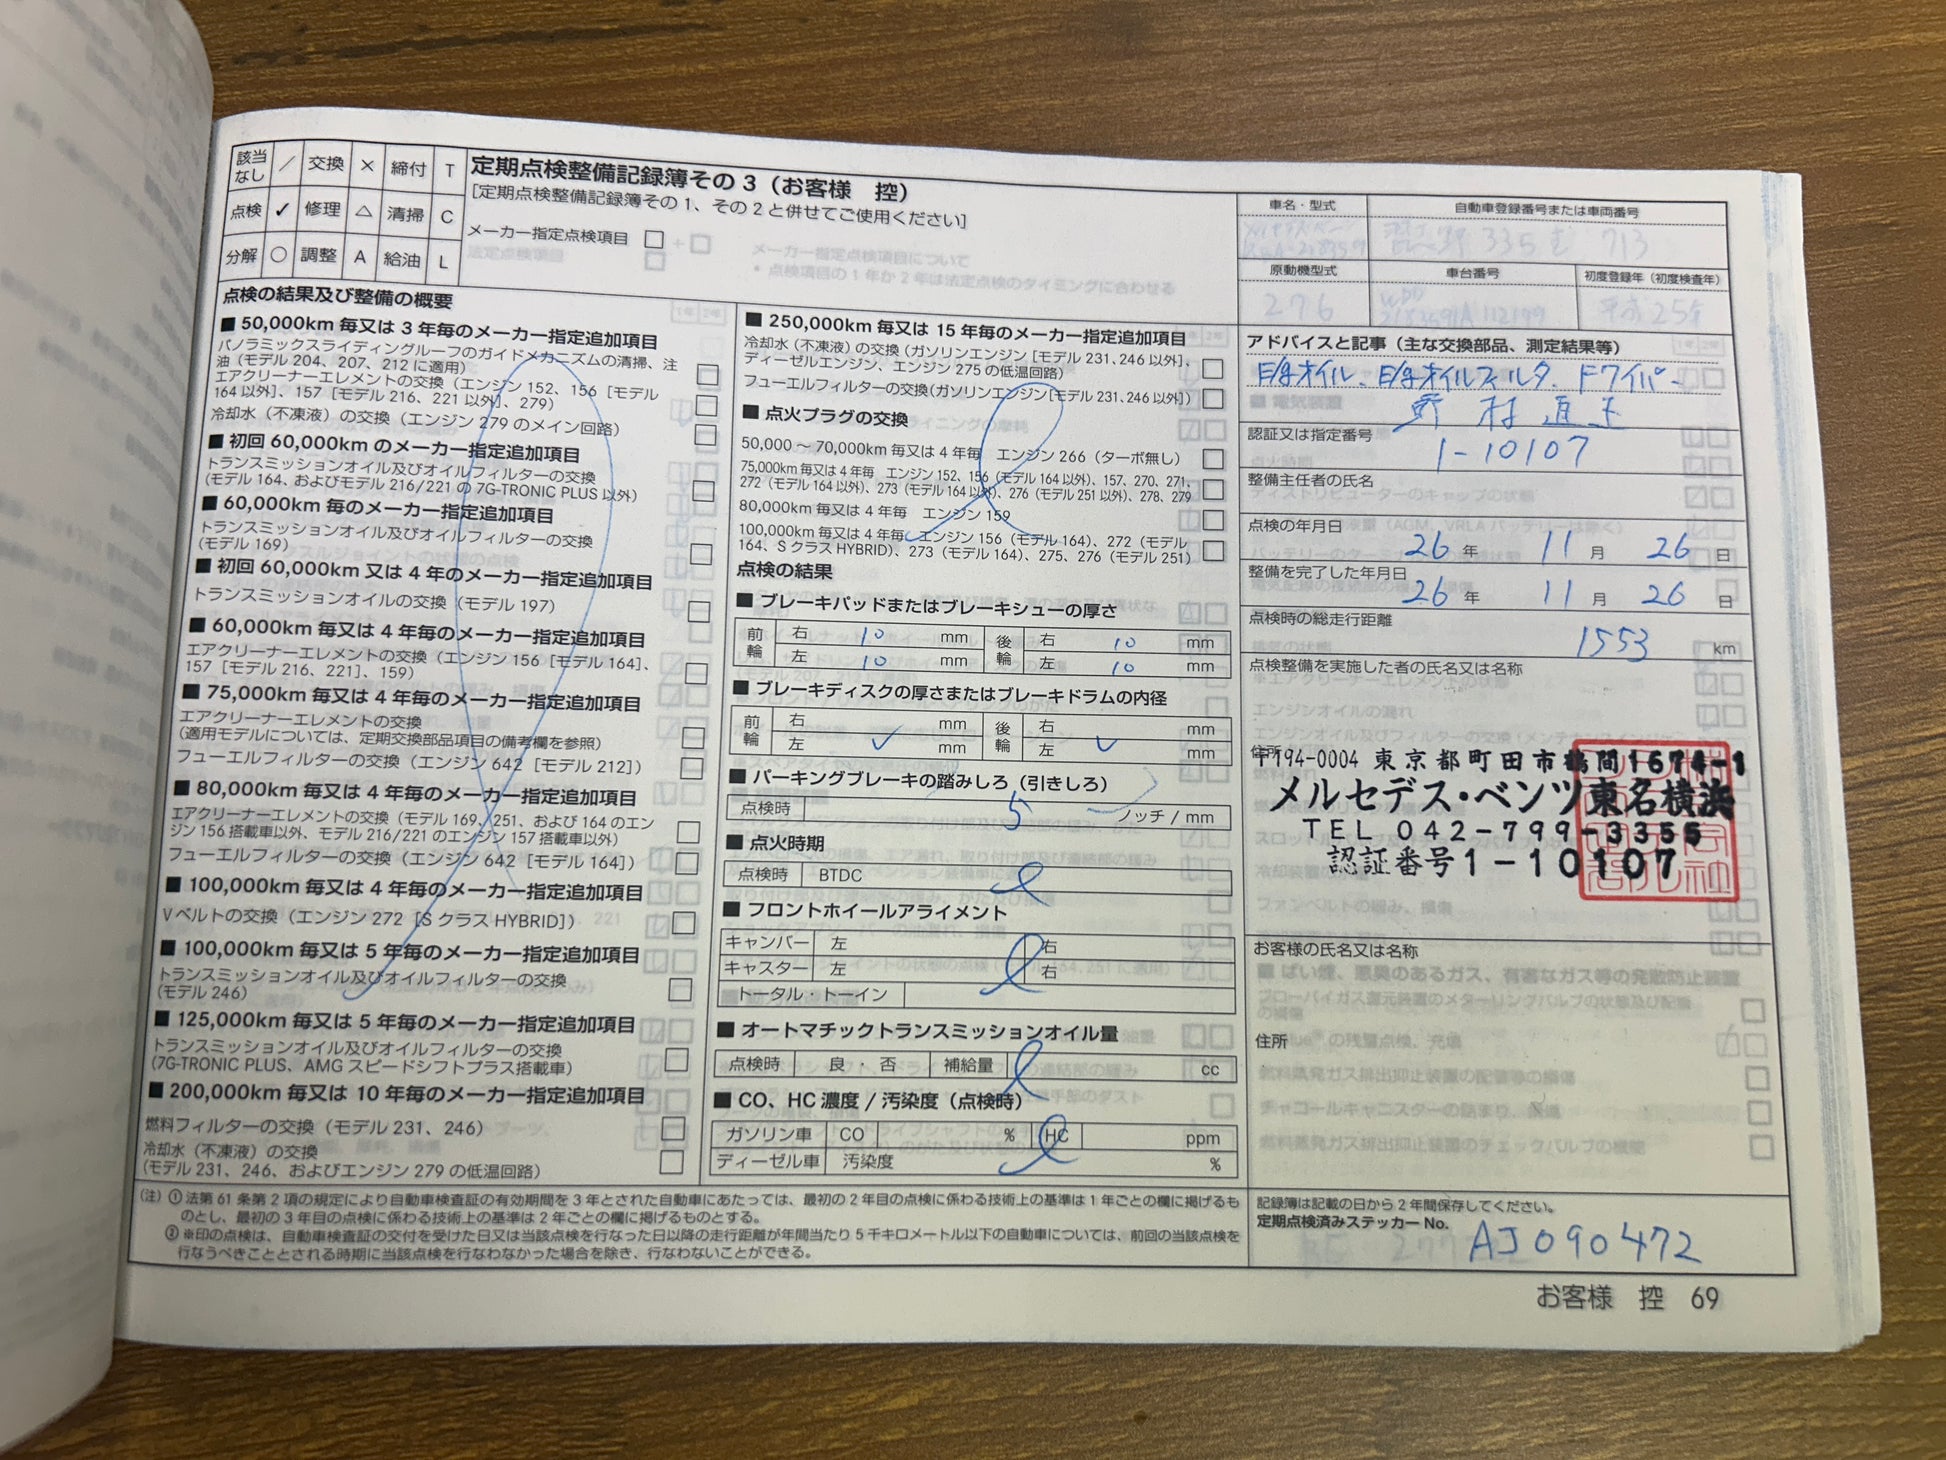 該当なし ／ 交換 × 締付 T
点検 ✓ 修理 △ 清掃 C
分解 ○ 調整 A 給油 L
定期点検整備記録簿その3（お客様　控）
[定期点検整備記録簿その1、その2と併せてご使用ください]
メーカー指定点検項目 □
点検の結果及び整備の概要
■ 50,000km 毎又は3年毎のメーカー指定追加項目
パノラミックスライディングルーフのガイドメカニズムの清掃、注
油（モデル 204、207、212 に適用）
エアクリーナーエレメントの交換（エンジン 152、156［モデル
164 以外］、157［モデル 216、221 以外］、279）
冷却水（不凍液）の交換（エンジン 279 のメイン回路）
■ 初回 60,000km のメーカー指定追加項目
トランスミッションオイル及びオイルフィルターの交換
（モデル 164、およびモデル 216/221 の 7G-TRONIC PLUS 以外）
■ 60,000km 毎のメーカー指定追加項目
トランスミッションオイル及びオイルフィルターの交換
（モデル 169）
■ 初回 60,000km 又は4年毎のメーカー指定追加項目
トランスミッションオイルの交換（モデル 197）
■ 60,000km 毎又は4年毎のメーカー指定追加項目
エアクリーナーエレメントの交換（エンジン 156［モデル 164］、
157［モデル 216、221］、159）
■ 75,000km 毎又は4年毎のメーカー指定追加項目
エアクリーナーエレメントの交換
（適用モデルについては、定期交換部品項目の備考欄を参照）
フューエルフィルターの交換（エンジン 642［モデル 212］）
■ 80,000km 毎又は4年毎のメーカー指定追加項目
エアクリーナーエレメントの交換（モデル 169、251、および 164 のエン
ジン 156 搭載車以外、モデル 216/221 のエンジン 157 搭載車以外）
フューエルフィルターの交換（エンジン 642［モデル 164］）
■ 100,000km 毎又は4年毎のメーカー指定追加項目
Vベルトの交換（エンジン 272［S クラス HYBRID］）
■ 100,000km 毎又は5年毎のメーカー指定追加項目
トランスミッションオイル及びオイルフィルターの交換
（モデル 246）
■ 125,000km 毎又は5年毎のメーカー指定追加項目
トランスミッションオイル及びオイルフィルターの交換
（7G-TRONIC PLUS、AMG スピードシフトプラス搭載車）
■ 200,000km 毎又は 10 年毎のメーカー指定追加項目
燃料フィルターの交換（モデル 231、246）
冷却水（不凍液）の交換
（モデル 231、246、およびエンジン 279 の低温回路）
■ 250,000km 毎又は 15 年毎のメーカー指定追加項目
冷却水（不凍液）の交換（ガソリンエンジン［モデル 231、246 以外］、
ディーゼルエンジン、エンジン 275 の低温回路）
フューエルフィルターの交換（ガソリンエンジン［モデル 231、246 以外］）
■ 点火プラグの交換
50,000 ～ 70,000km 毎又は 4 年毎　エンジン 266（ターボ無し）
75,000km 毎又は 4 年毎　エンジン 152、156（モデル 164 以外）、157、270、271、
272（モデル 164 以外）、273（モデル 164 以外）、276（モデル 251 以外）、278、279
80,000km 毎又は 4 年毎　エンジン 159
100,000km 毎又は 4 年毎　エンジン 156（モデル 164）、272（モデル
164、S クラス HYBRID）、273（モデル 164）、275、276（モデル 251）
点検の結果
■ ブレーキパッドまたはブレーキシューの厚さ
前輪 右 10 mm 後輪 右 10 mm
左 10 mm 左 10 mm
■ ブレーキディスクの厚さまたはブレーキドラムの内径
前輪 右 mm 後輪 右 mm
左 ✓ mm 左 ✓ mm
■ パーキングブレーキの踏みしろ（引きしろ）
点検時 5 ノッチ / mm
■ 点火時期
点検時 BTDC
■ フロントホイールアライメント
キャンバー 左 右
キャスター 左 右
トータル・トーイン
■ オートマチックトランスミッションオイル量
点検時 良・否 補給量 cc
■ CO、HC 濃度 / 汚染度（点検時）
ガソリン車 CO % HC ppm
ディーゼル車 汚染度 %
（注）① 法第 61 条第 2 項の規定により自動車検査証の有効期間を 3 年とされた自動車にあたっては、最初の 2 年目の点検に係わる技術上の基準は 1 年ごとの欄に掲げるも
のとし、最初の 3 年目の点検に係わる技術上の基準は 2 年ごとの欄に掲げるものとする。
② ※印の点検は、自動車検査証の交付を受けた日又は当該点検を行なった日以降の走行距離が年間当たり 5 千キロメートル以下の自動車については、前回の当該点検を
行なうべきこととされる時期に当該点検を行なわなかった場合を除き、行なわないことができる。
車名・型式 自動車登録番号または車両番号
335 713
原動機型式 車台番号 初度登録年（初度検査年）
276 平成25年
アドバイスと記事（主な交換部品、測定結果等）
E/gオイル、E/gオイルフィルタ、Fワイパー
野村
認証又は指定番号 1-10107
整備主任者の氏名
点検の年月日 26 年 11 月 26 日
整備を完了した年月日 26 年 11 月 26 日
点検時の総走行距離 1553 km
点検整備を実施した者の氏名又は名称
住所
〒194-0004 東京都町田市鶴間1674-1
メルセデス・ベンツ東名横浜
TEL 042-799-3355
認証番号1-10107
お客様の氏名又は名称
住所
記録簿は記載の日から 2 年間保存してください。
定期点検済みステッカー No.
AJ090472
お客様　控　69